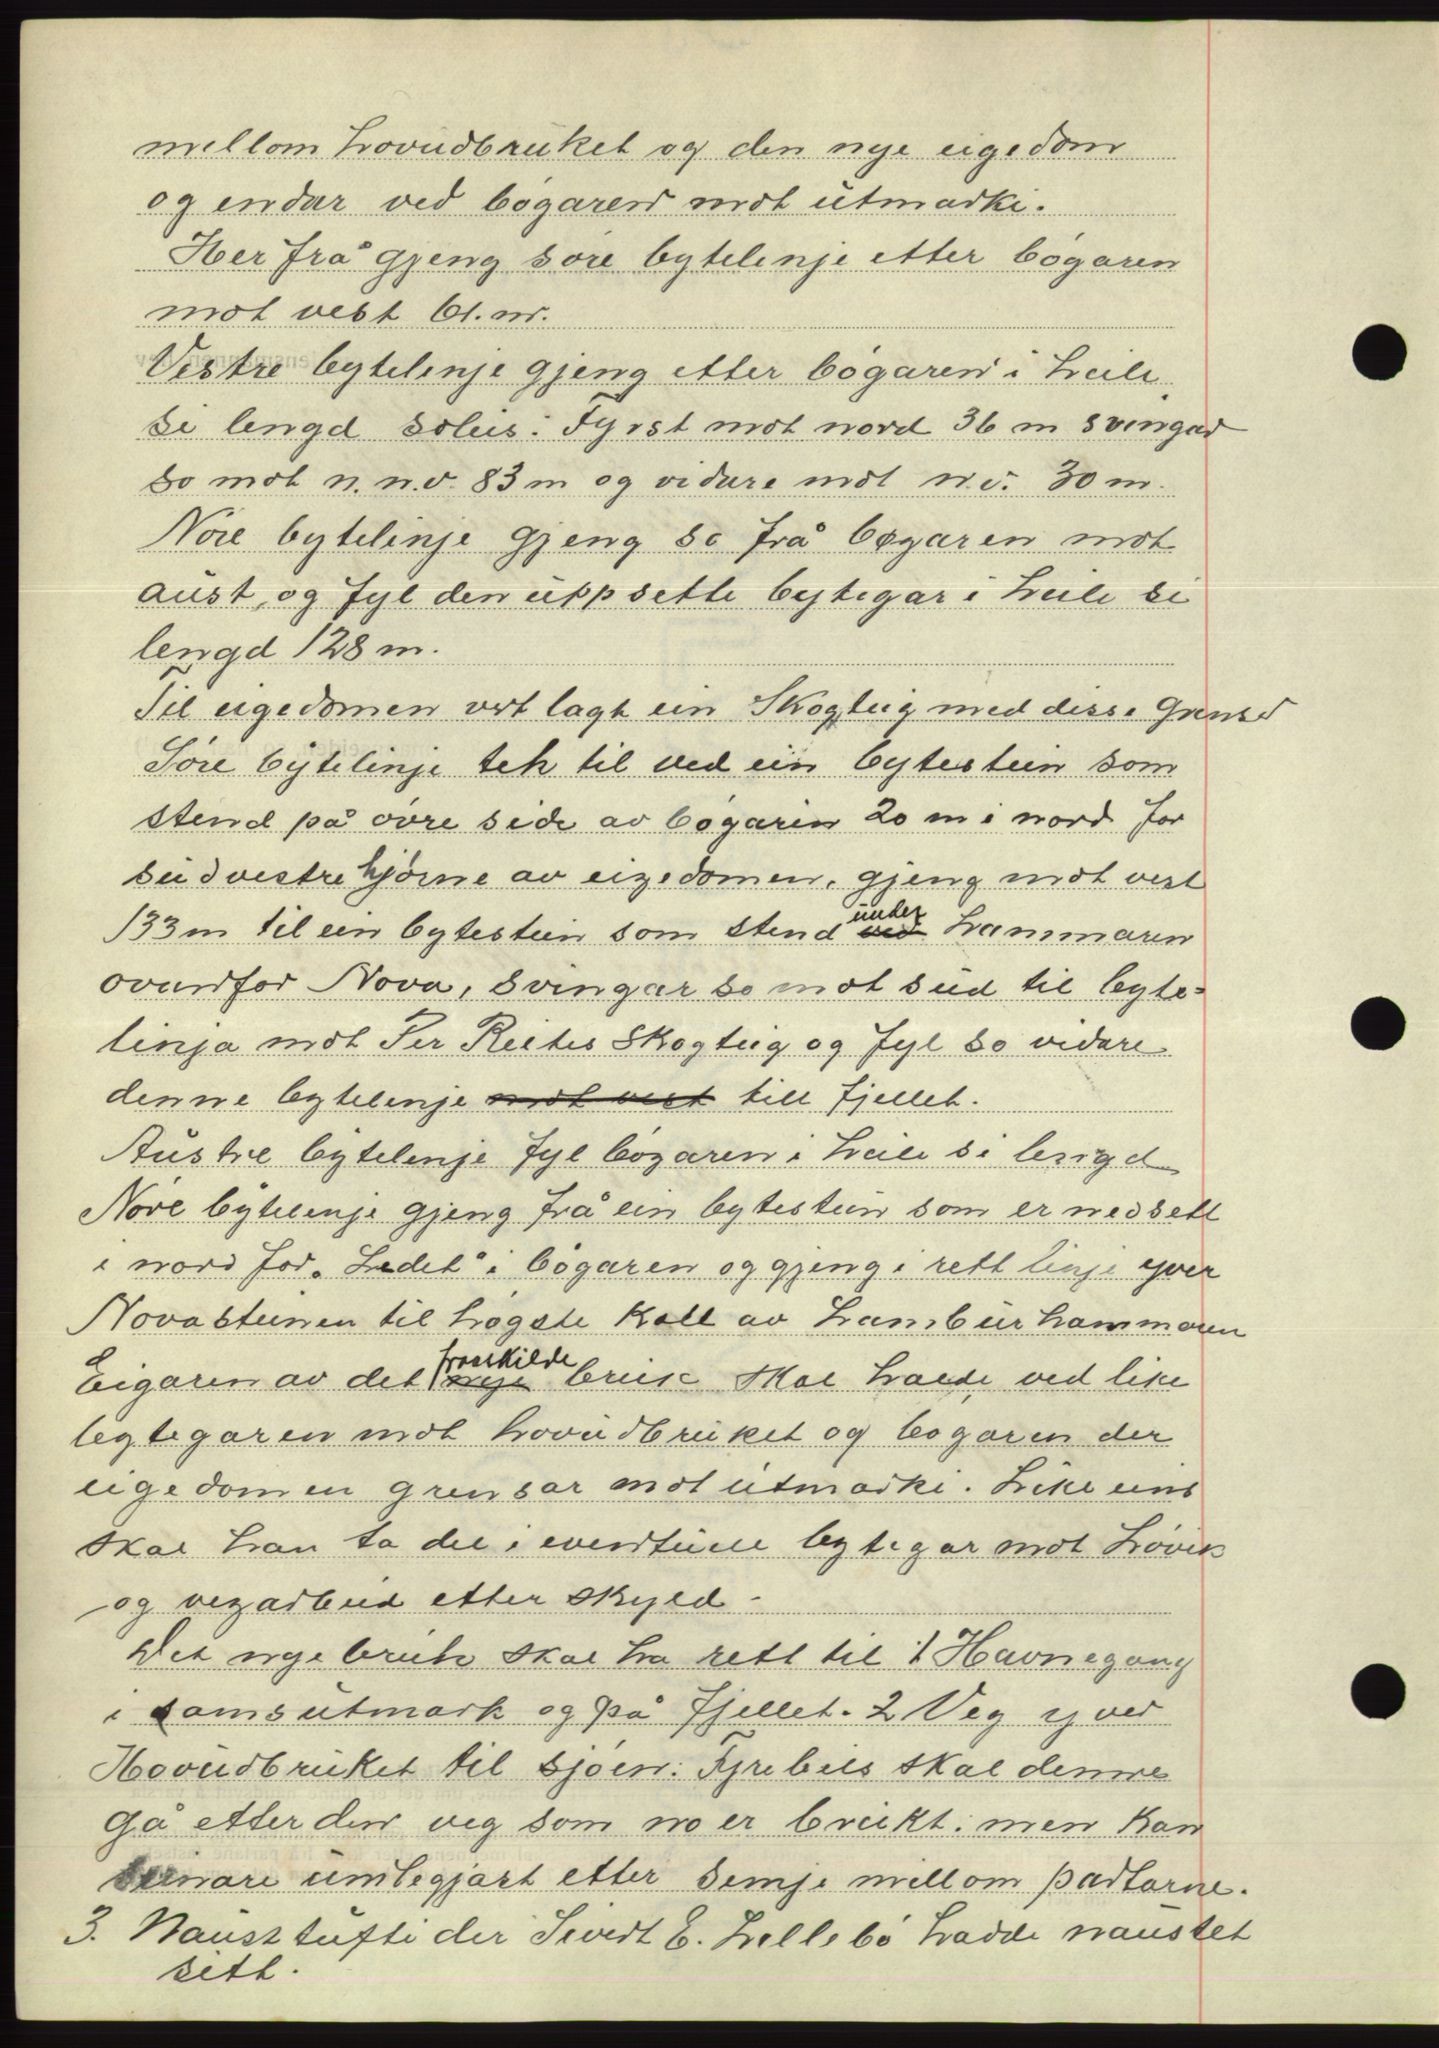 mellom hovudbruket og den nye eigedom
og endar ved bøgaren mot utmarki.
Her frå gjeng søre bytelinje etter bøgaren
mot vest 61. m.
Vestre bytelinje gjeng etter bøgaren i heile
si lengd soleis: Fyrst mot nord 36 m svingar
so mot n.n.v. 83 m og vidare mot n.v. 30 m.
Nore bytelinje gjeng so frå bøgaren mot
aust, og fyl den uppsette bytegar i heile si
lengd 128 m.
Til eigedomen vert lagt ein Skogteig med disse Grenser
Søre bytelinje tek til ved ein bytestein som
stend på øvre side av bøgaren 20 m i nord for
sudvestre hjørne av eigedomen, gjeng mot vest
133 m til ein bytestein som stend ved under hammaren
ovanfor Nova, svingar so mot sud til byte=
linja mot Per Reites Skogteig og fyl so vidare
denne bytelinje mot vest till fjellet.
Austre bytelinje fyl bøgaren i heile si lengd
Nore bytelinje gjeng frå ein bytestein som er nedsett
i nord for "Ledet" i bøgaren og gjeng i rett linje yver
Novasteinen til høgste Koll av Hamburhammaren
Eigaren av det nye fraskilde bruk skal halde ved like
bytegaren mot hovudbruket og bøgaren der
eigedomen grensar mot utmarki. Like eins
skal han ta del i eventuell bytegar mot Løvik
og vegarbeid etter skyld.
Det nye bruk skal ha rett til 1 Havnegang
i samsutmark og på fjellet. 2 Veg yver
Hovudbruket til sjøen: Fyrebils skal denne
gå etter den veg som no er brukt: men kan
seinare umlegjast etter semje millom partarne.
3. Nausttufti der Sivert E. Lillebø hadde naustet
sitt.